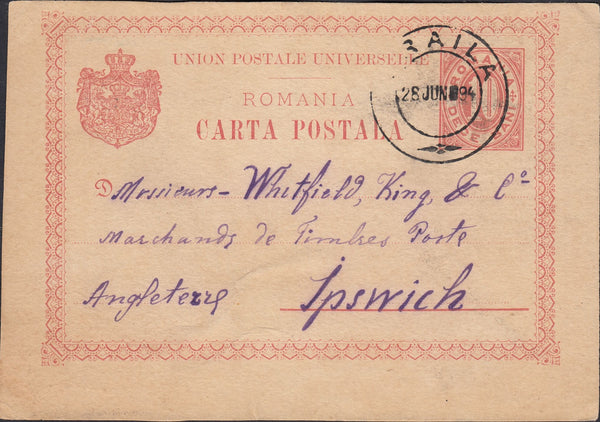 UNION POSTALE UNIVERSELLE
ROMANIA
CARTA POSTALA
BRAILA
28 JUN 94
D Messieurs - Whitfield, King, & Cº
Marchands de Timbres Poste
Angleterre Ipswich